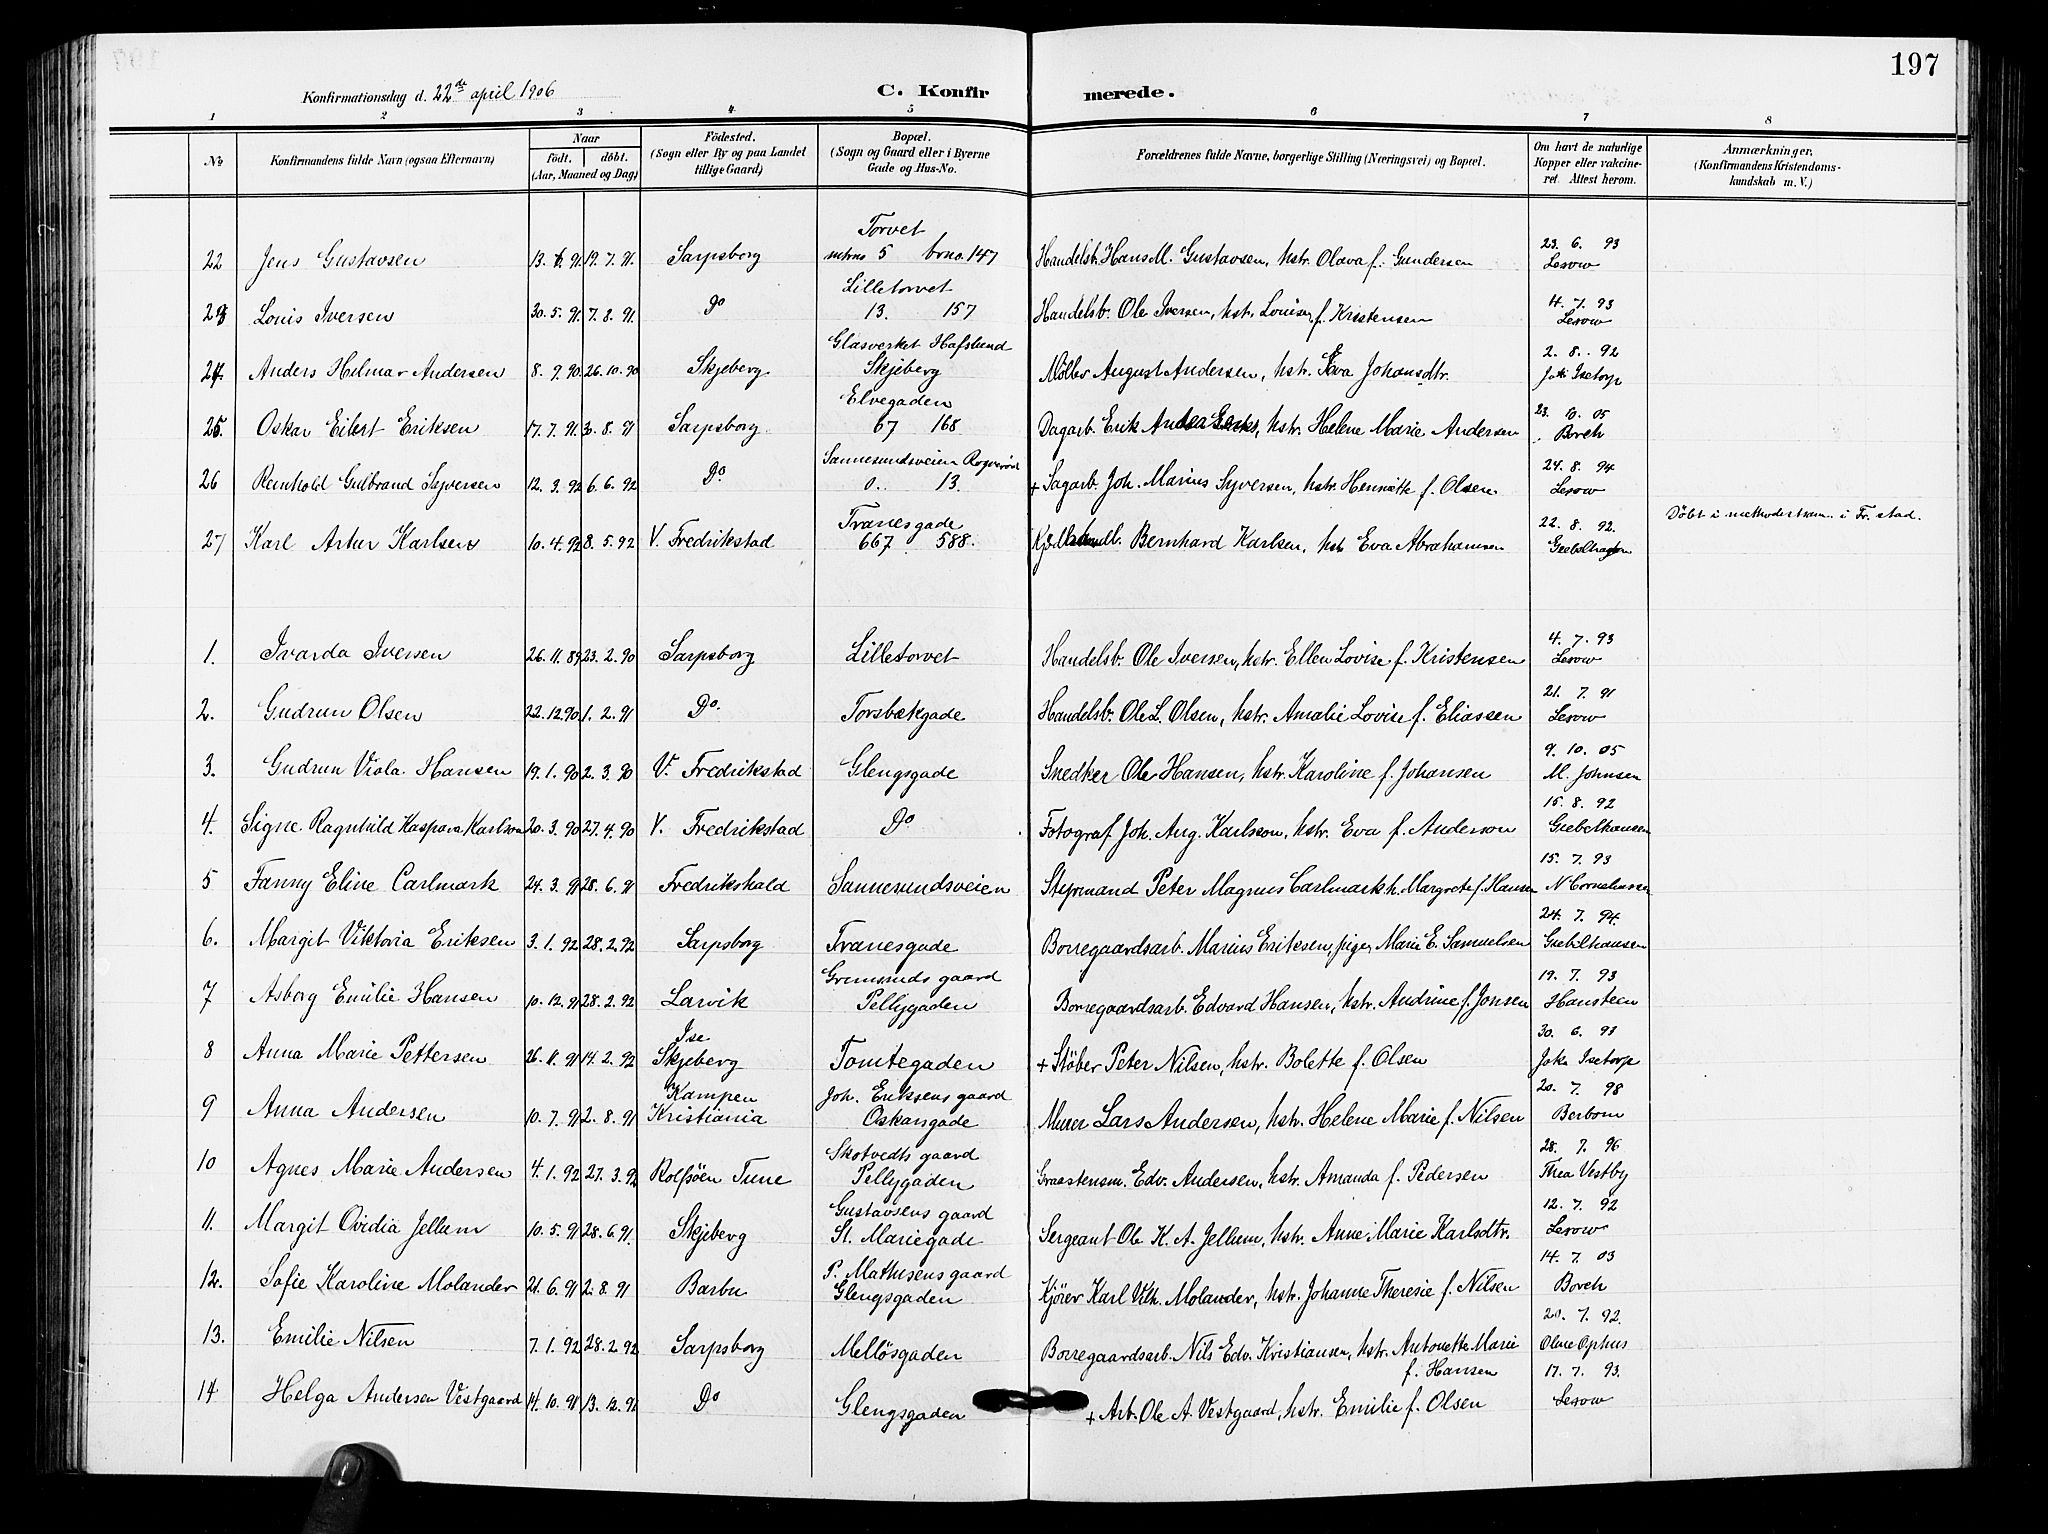 197
Konfirmationsdag d. 22de april 1906
C. Konfirmerede.
1 2 3 4 5 6 7 8
No
Konfirmandens fulde Navn (ogsaa Efternavn)
Naar
födt. döbt.
(Aar, Maaned og Dag)
Födested.
(Sogn eller By og paa Landet
tillige Gaard)
Bopæl.
(Sogn og Gaard eller i Byerne
Gade og Hus-No.
Forældrenes fulde Navne, borgerlige Stilling (Næringsvei) og Bopæl.
Om havt de naturlige
Kopper eller vakcine-
ret. Attest herom.
Anmærkninger,
(Konfirmandens Kristendoms-
kundskab m. V.)
Torvet 23. 6. 93
22 Jens Gustavsen 13. 6. 91. 19. 7. 91. Sarpsborg mtrno 5 brno. 147 Handelsb. Hans M. Gustavsen, hstr. Olava f. Gundersen Lesow
Lilletorvet 4. 7. 93
23 Louis Iversen 30. 5. 91. 7. 8. 91. Do 13. 157 Handelsb. Ole Iversen, hstr. Louise f. Kristensen Lesow
Glasverket Hafslund 2. 8. 92
24. Anders Helmar Andersen 8. 9. 90 26. 10. 90 Skjeberg Skjeberg Møller August Andersen, hstr. Eva Johansdtr. Joh. Isetorp
Elvegaden 23. 10. 05
25. Oskar Eilert Eriksen 17. 7. 91. 30. 8. 91 Sarpsborg 67 168 Dagarb. Erik hstr. Helene Marie Andersen Borch
Sannesundsveien 24. 8. 94
26 Reinhold Gulbrand Syversen 12. 3. 92 6. 6. 92 Do 0. 13. + Sagarb. Joh. Marius Syversen, hstr. Henriette f. Olsen. Lesow
Tranesgade 22. 8. 92. Døbt i methodistkam. i Fr.stad.
27 Karl Artur Karlsen 10. 4. 92 8. 5. 92 V. Fredrikstad 667 588. Bernhard Karlsen, hstr Eva Abrahamsen Giebelhausen
4. 7. 93
1. Ivarda Iversen 26. 11. 89 23. 2. 90 Sarpsborg Lilletorvet Handelsb. Ole Iversen, hstr. Ellen Lovise f. Kristensen Lesow
21. 7. 91
2. Gudrun Olsen 22. 12. 90 1. 2. 91 Do. Torsbækgade Handelsb. Ole L. Olsen, hstr. Amalie Lovise f. Eliassen Lesow
9. 10. 05
3. Gudrun Viola Hansen 19. 1. 90 2. 3. 90 V. Fredrikstad Glengsgade Snedker Ole Hansen, hstr. Karoline f. Johansen M. Johnsen
15. 8. 92
4. Signe Ragnhild Kaspara Karlson 20. 3. 90 27. 4. 90 V. Fredrikstad Do Fotograf Joh. Aug. Karlsson, hstr. Eva f. Anderson Giebelhausen
15. 7. 93
5 Fanny Eline Carlmark 24. 3. 91 28. 6. 91 Fredrikshald Sannesundsveien Styrmand Peter Magnus Carlmark h. Margrete f. Hansen N Corneliussen
24. 7. 94.
6. Margit Viktoria Eriksen 3. 1. 92 28. 2. 92 Sarpsborg Tranesgade Borregaardsarb. Marius Eriksen, pige Marie E. Samuelsen Giebilhausen
Grimsrunds gaard 19. 7. 93
7 Asborg Emilie Hansen 10. 12. 91 28. 2. 92 Larvik Pellygaden Borregaardsarb. Edvard Hansen, hstr. Andrine f. Jonsen Hansteen
Ise 30. 6. 93
8 Anna Marie Pettersen 26. 11. 91 14. 2. 92 Skjeberg Tomtegaden + Støber Peter Nilsen, hstr. Bolette f. Olsen Joh. Isetorp
Kampen Joh. Eriksens gaard 20. 7. 98
9 Anna Andersen 10. 7. 91 2. 8. 91 Kristiania Oskarsgade Murer Lars Andersen, hstr. Helene Marie f. Nilsen Berbom
Skotvedts gaard 28. 7. 96
10 Agnes Marie Andersen 4. 1. 92 27. 3. 92 Rolfsöen Tune Pellygaden Graastensm. Edv. Andersen, hstr. Amanda f. Pedersen Thea Vestby
Gustavsens gaard 12. 7. 92
11. Margit Ovidia Jellum 10. 5. 91 28. 6. 91. Skjeberg St. Mariegade Sergeant Ole K. A. Jellum, hstr. Anne Marie Karlsdtr. Lesow
P. Mathisens gaard 14. 7. 03
12. Sofie Karoline Molander 21. 6. 91 2. 8. 91 Barbu Glengsgaden Kjörer Karl Vilh. Molander, hstr. Johanne Theresie f. Nilsen Borch
20. 7. 92.
13. Emilie Nilsen 7. 1. 92 28. 2. 92 Sarpsborg Mellösgaden Borregaardsarb. Nils Edv. Kristiansen, hstr. Antonette Marie Olave Ophus
f. Hansen 17. 7. 93.
14 Helga Andersen Vestgaard 14. 10. 91 13. 12. 91 Do Glengsgaden + Arb. Ole A. Vestgaard, hstr. Emilie f. Olsen Lesow